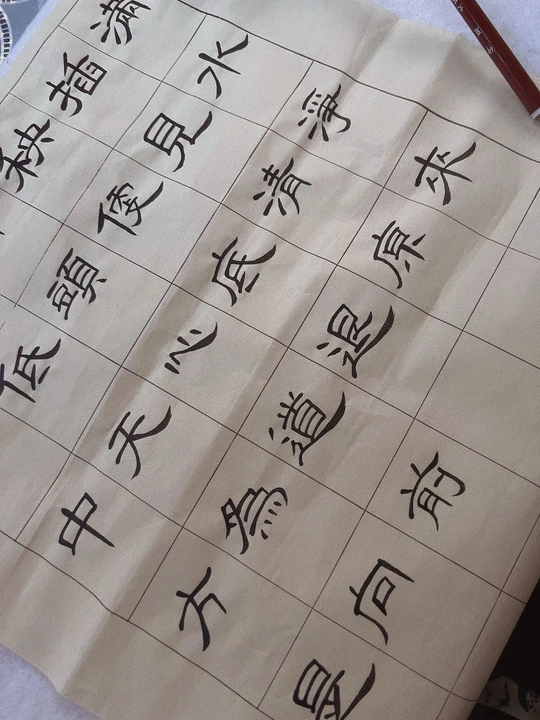 秧插滿
低頭倭見水
中天心底清淨
方為道退原來
是向前